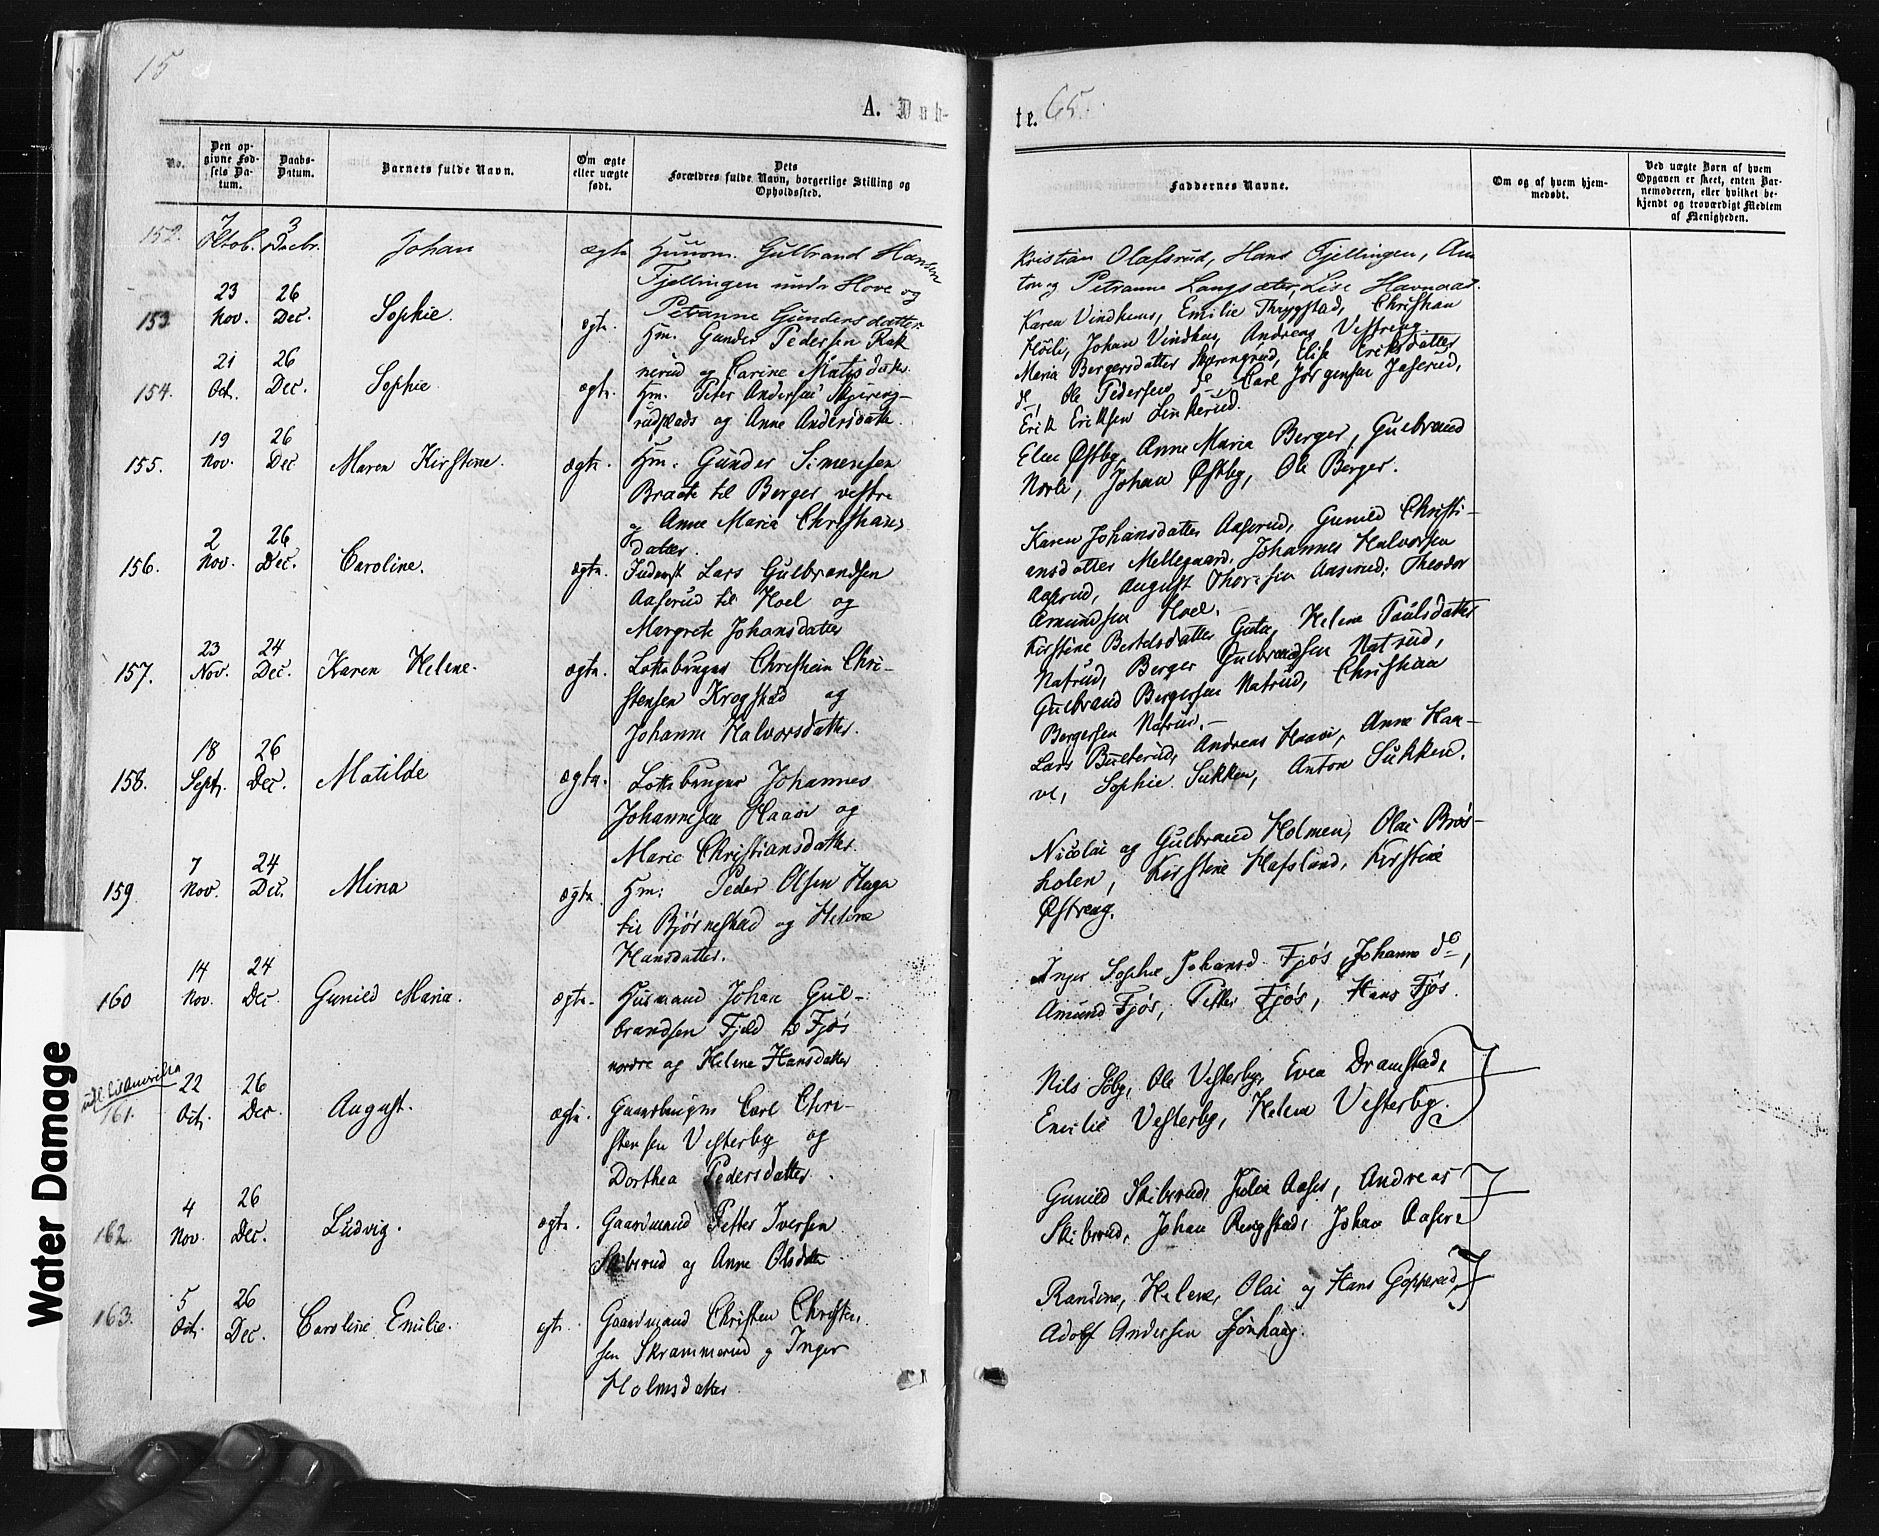 15
A. Dub-
No.
Den op-
givne Fød-
sels Da-
tum.
Daabs-
Datum.
Barnets fulde Navn.
Om ægte
eller uægte
født.
Dets
Forældres fulde Navn, borgerlige Stilling og
Opholdssted.
152.
7
Oktob.
3
Decbr.
Johan
ægte
Huusm. Gulbrand Hansen
Fjellingen under Hove og
Petranne Gundersdatter
153
23
Nov.
26
Dec.
Sophie.
ægte.
Hm. Gunder Pedersen Rak
nerud og Carine Mathisdatter
154.
21
Oct.
26
Dec.
Sophie
ægte.
Hm. Peter Andersen Skjæreng-
rudplads og Anne Andersdatter.
155.
19
Nov.
26
Dec
Maren Kirstine.
ægte.
Hm. Gunder Simensen
Braate til Berger vestre
og Anne Maria Christians
datter.
156.
2
Nov.
26
Dec.
Caroline.
ægte.
Inderst Lars Gulbrandsen
Aaserud til Hoel og
Margrete Johansdatter
157.
23
Nov.
24
Dec.
Karen Helene.
ægte.
Lottebruger Christian Chri-
stensen Krogstad og
Johanne Halvorsdatter.
158.
18
Sept.
26
Dec.
Matilde
ægte.
Lottebruger Johannes
Johannesen Haave og
Marie Christiansdatter.
159
7
Nov.
24
Dec.
Mina
ægte.
Hm: Peder Olsen Haga
til Bjørnestad og Helene
Hansdatter.
160
14
Nov.
24
Dec.
Gunild Maria.
ægte.
Husmand Johan Gul-
brandsen Fjeld til Fjøs
nordre og Helene Hansdatter
udf. til Amerika
161.
22
Oct.
26
Dec.
August.
ægte.
Gaardbruger Carl Chri-
stensen Vesterby og
Dorthea Pedersdatter.
162
4
Nov.
26
Dec.
Ludvig.
ægte.
Gaardmand Petter Iversen
Skiberud og Anne Olsdatter
163.
5
Oct.
26
Dec.
Caroline Emilie.
ægte.
Gaardmand Christen Christen
sen Skrammerud og Inger
Holmsdatter.
te. 65.
Faddernes Navne.
Om og af hvem hjem-
medøbt.
Ved uægte Børn af hvem
Opgaven er skeet, enten Bar-
nemoderen, eller hvilket be-
kjendt og troværdigt Medlem
af Menigheden.
Kristian Olafsrud, Hans Fjellingen, An
ton og Petranne Langsæter, Lise Havnaas.
Karen Vindhus, Emilie Thrygstad, Christian
Høili, Johan Vindhus, Andreas Vestreng.
Maria Bergersdatter Skjærengrud, Elise Eriksdatter
do, Ole Pedersen do, Carl Jørgensen Jaserud,
Erik Eriksen Linkerud.
Elen Østby, Anne Maria Berger, Gulbrand
Norli, Johan Østby, Ole Berger.
Karen Johansdatter Aaserud, Gunild Christi-
ansdatter Mellegaard, Johannes Halvorsen
Aaserud, August Thoresen Aaserud, Theodor
Amundsen Hoel.
Kirstine Bertelsdatter Gute, Helene Paulsdatter
Natrud, Berger Gulbrandsen Natrud,
Gulbrand Bergersen Natrud, Christian
Bergersen Natrud.
Lars Bulterud, Andreas Haave, Anne Haa-
ve, Sophie Sukken, Anton Sukken.
Nicolai og Gulbrand Holmen, Olai Brøs-
holen, Kirstine Hafslund, Kirstine
Østreng.
Inger Sophie Johansd. Fjøs, Johanne do,
Amund Fjøs, Petter Fjøs, Hans Fjøs.
Nils Soby, Ole Vesterby, Evea Dramstad,
Emilie Vesterby, Helene Vesterby.
Gunild Skiberud, Julia Aaser, Andreas
Skiberud, Johan Rengstad, Johan Aasere
Randine, Helene, Olai og Hans Gopperud,
Adolf Andersen Grønhaug.
Water Damage